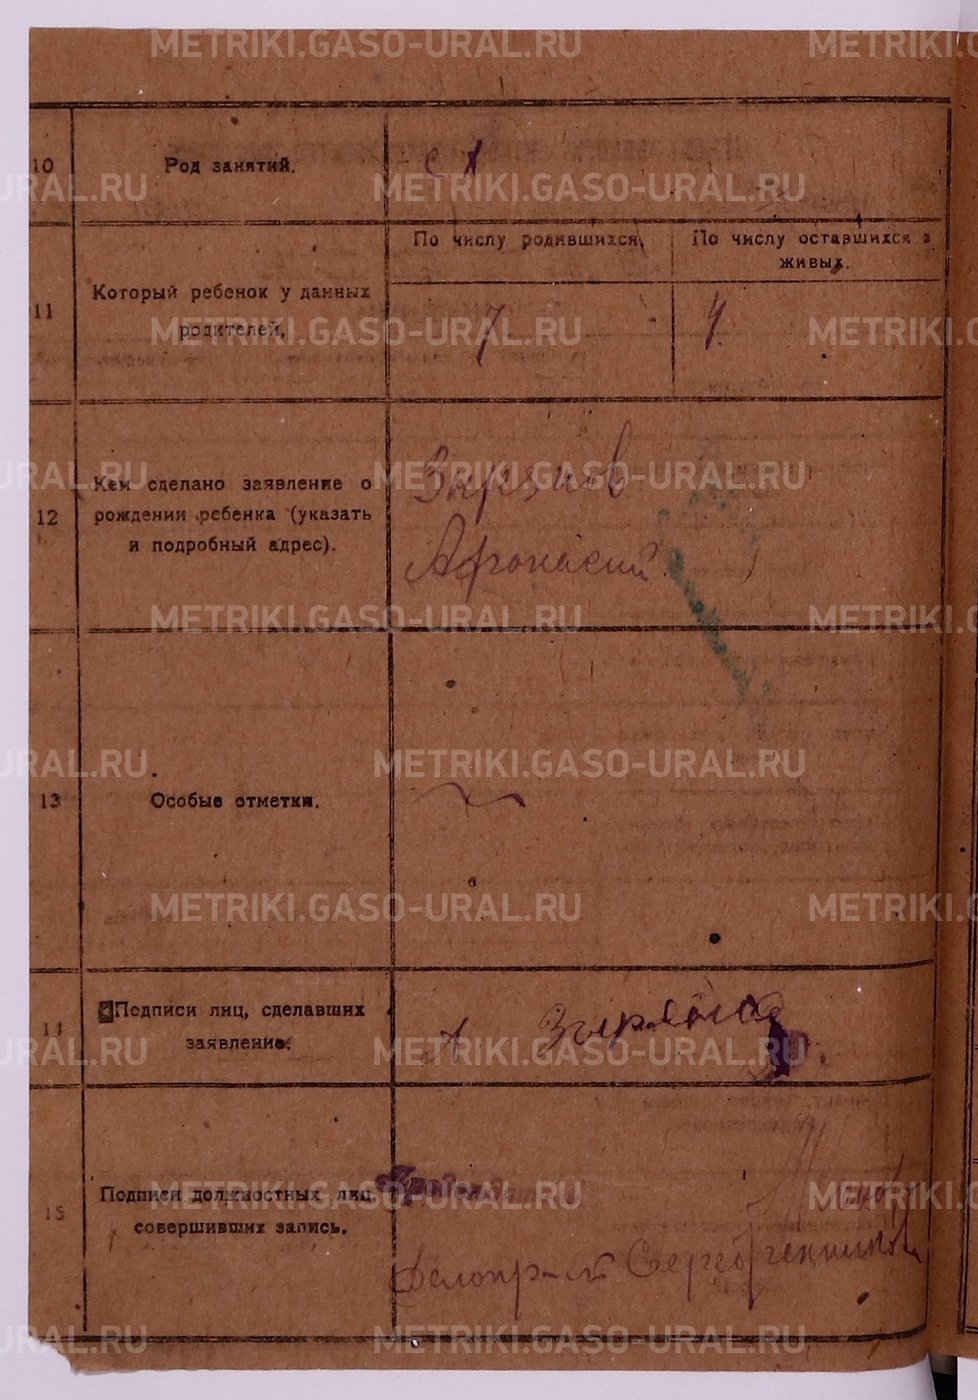 10
Род занятий.
с х
11
Который ребенок у данных
родителей.
По числу родившихся.
По числу оставшихся в
живых.
7
4
12
Кем сделано заявление о
рождении ребенка (указать
и подробный адрес).
Зырянов
Афонасий
13
Особые отметки.
14
Подписи лиц, сделавших
заявление.
А Зырянов
15
Подписи должностных лиц,
совершивших запись.
Председатель
Делопр-ль
METRIKI.GASO-URAL.RU